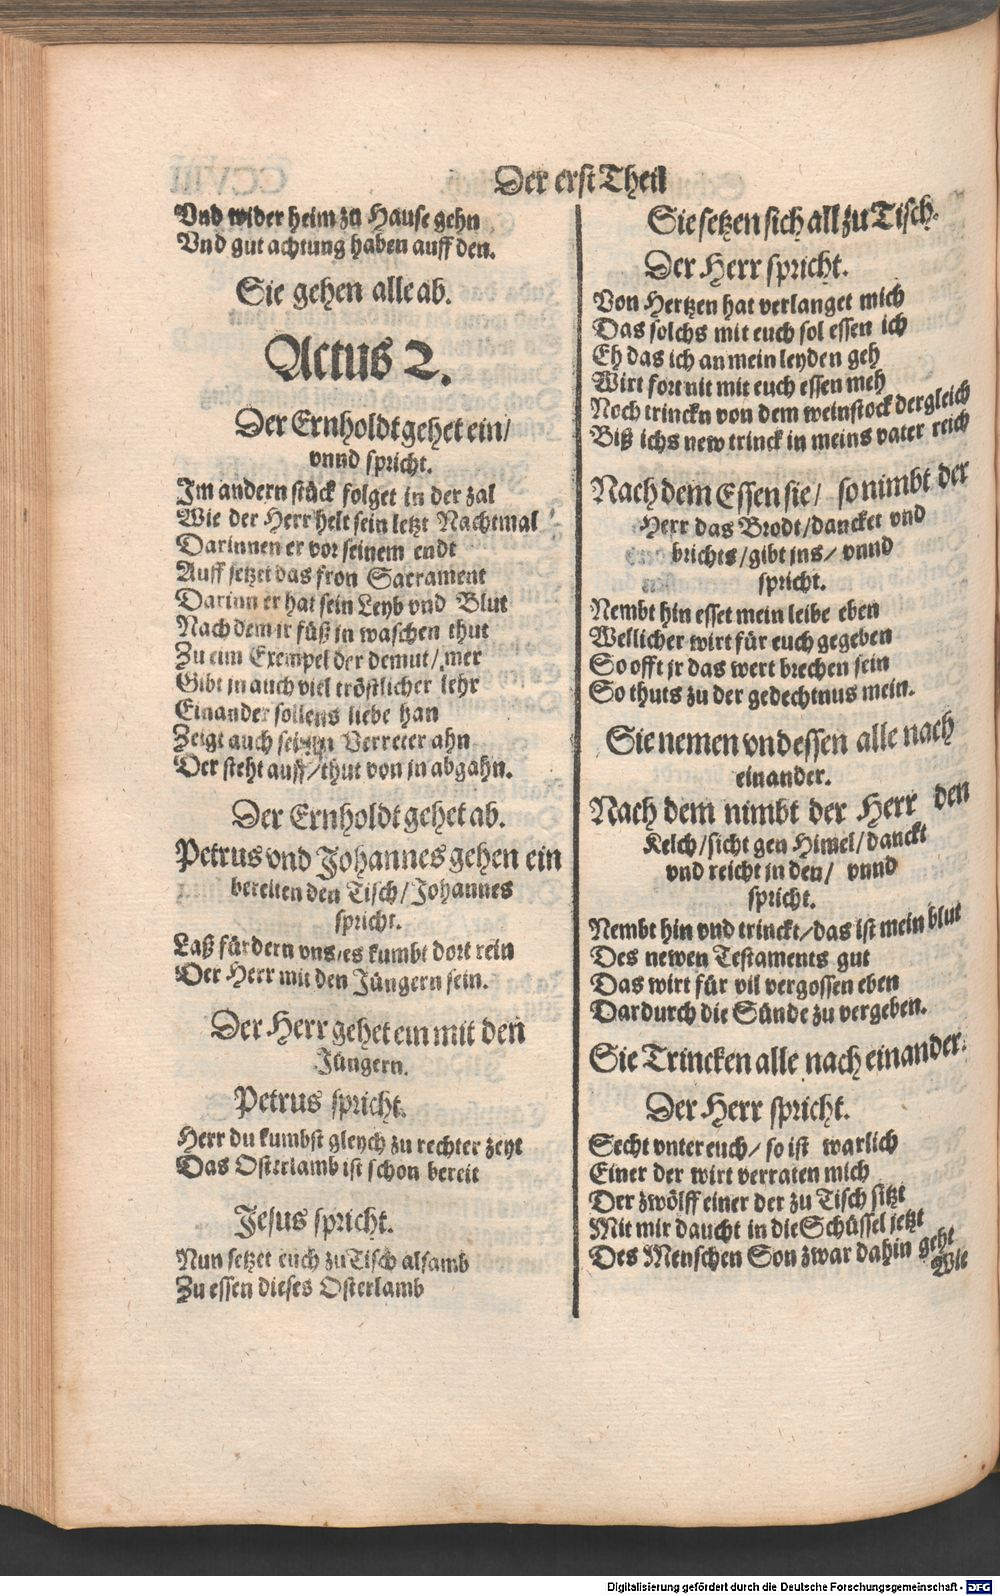 Der erst Theil
Vnd wider heim zu Hause gehn
Vnd gut achtung haben auff den.
Sie gehen alle ab.
Actus 2.
Der Ernholdt gehet ein/
vnnd spricht.
Im andern stück folget in der zal
Wie der Herr helt sein letzt Nachtmal
Darinnen er vor seinem endt
Auff setzet das fron Sacrament
Darinn er hat sein Leyb vnd Blut
Nach dem ir füß in waschen thut
Zu eim Exempel der demut/ mer
Gibt in auch viel tröstlicher lehr
Einander sollens liebe han
Zeigt auch seinen Verreter ahn
Der steht auff/thut von in abgahn.
Der Ernholdt gehet ab.
Petrus vnd Johannes gehen ein
bereiten den Tisch/Johannes
spricht.
Laß fürdern vns/es kumbt dort rein
Der Herr mit den Jüngern sein.
Der Herr gehet ein mit den
Jüngern.
Petrus spricht.
Herr du kumbst gleych zu rechter zeyt
Das Osterlamb ist schon bereit
Jesus spricht.
Nun setzet euch zu Tisch alsamb
Zu essen dieses Osterlamb
Sie setzen sich all zu Tisch.
Der Herr spricht.
Von Hertzen hat verlanget mich
Das solchs mit euch sol essen ich
Eh das ich an mein leyden geh
Wirt fort nit mit euch essen meh
Noch trinckn von dem weinstock dergleich
Biß ichs new trinck in meins vater reich
Nach dem Essen sie/ so nimbt der
Herr das Brodt/dancket vnd
brichts/gibt jns/ vnnd
spricht.
Nembt hin esset mein leibe eben
Wellicher wirt für euch gegeben
So offt jr das wert brechen fein
So thuts zu der gedechtnus mein.
Sie nemen vnd essen alle nach
einander.
Nach dem nimbt der Herr den
Kelch/sicht gen Himel/danckt
vnd reicht jn den/ vnnd
spricht.
Nembt hin vnd trinckt/das ist mein blut
Des newen Testaments gut
Das wirt für vil vergossen eben
Dardurch die Sünde zu vergeben.
Sie Trincken alle nach einander.
Der Herr spricht.
Secht vnter euch/ so ist warlich
Einer der wirt verraten mich
Der zwölff einer der zu Tisch sitzt
Mit mir daucht in die Schüssel jetzt
Des Menschen Son zwar dahin geht
Wie
Digitalisierung gefördert durch die Deutsche Forschungsgemeinschaft - DFG